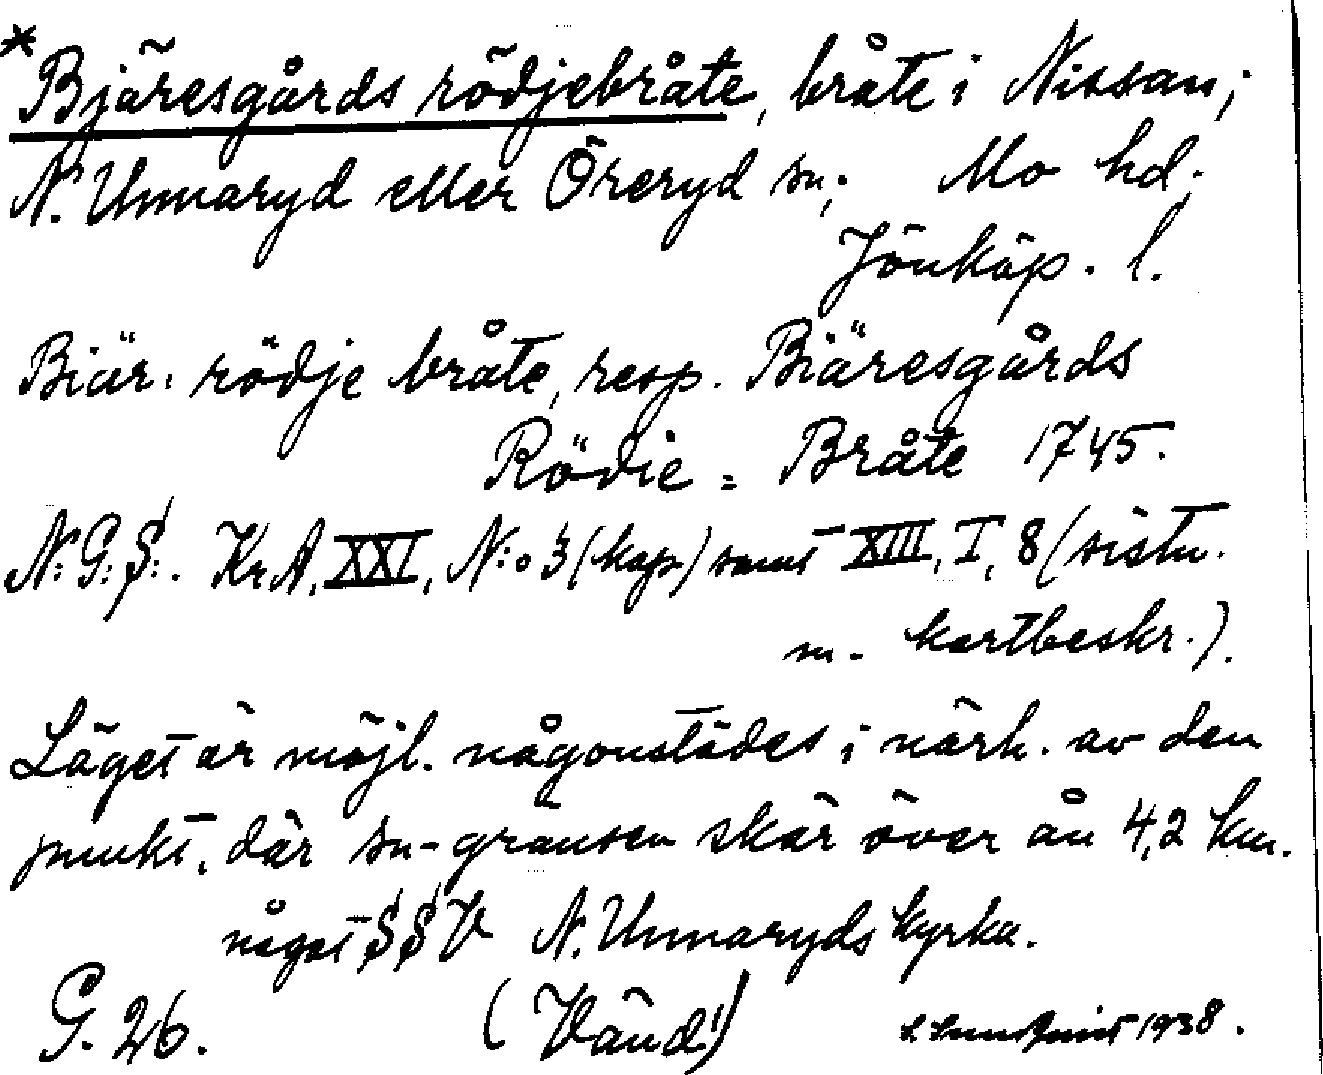 * Bjäresgårds rödjebråte, bråte i Nissan;
N. Unnaryd eller Öreryd sn; Mo hd;
Jönköp. l.
Biär: rödje bråte, resp. Biäresgårds
Rödie = Bråte 1745.
N:G:S:. KrA, XXI, N:o 3 (kop) samt XIII, I, 8 (sistn.
m. kartbeskr.).
Läget är möjl. någonstädes i närh. av den
punkt, där sn-gränsen skär över ån 4,2 km.
något SSV N. Unnaryds kyrka.
G. 26. (Vänd!) 1938.